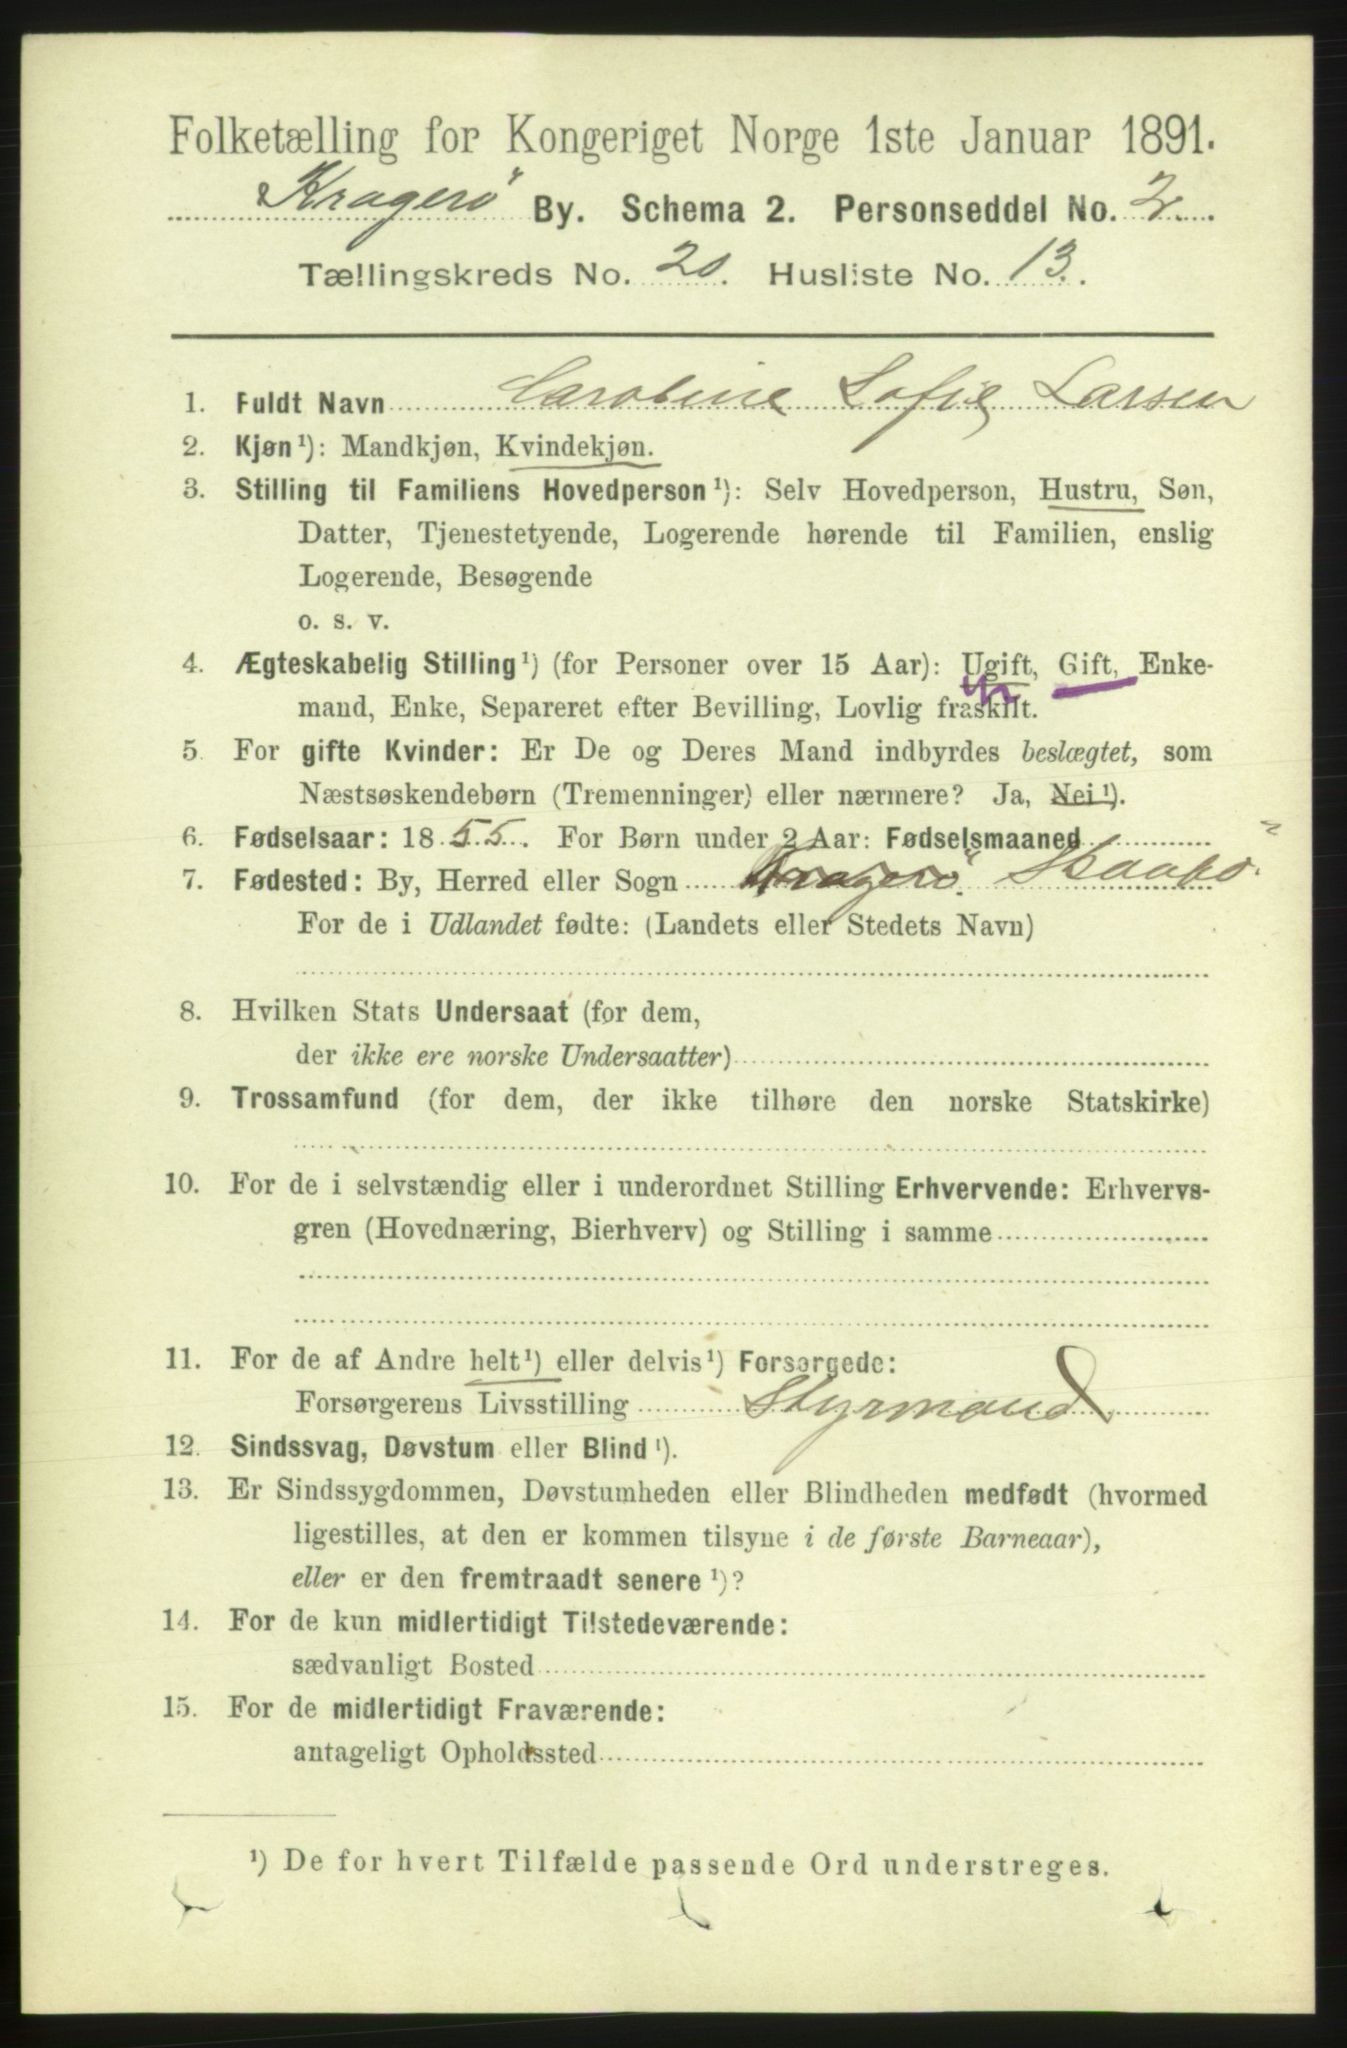 Folketælling for Kongeriget Norge 1ste Januar 1891.
Kragerö By. Schema 2. Personseddel No. 2.
Tællingskreds No. 20. Husliste No. 13.
1. Fuldt Navn Caroline Sofie Larsen
2. Kjøn¹): Mandkjøn, Kvindekjøn.
3. Stilling til Familiens Hovedperson¹): Selv Hovedperson, Hustru, Søn,
Datter, Tjenestetyende, Logerende hørende til Familien, enslig
Logerende, Besøgende
o. s. v.
4. Ægteskabelig Stilling¹) (for Personer over 15 Aar): Ugift, Gift, Enke-
mand, Enke, Separeret efter Bevilling, Lovlig fraskilt.
5. For gifte Kvinder: Er De og Deres Mand indbyrdes beslægtet, som
Næstsøskendebørn (Tremenninger) eller nærmere? Ja, Nei¹).
6. Fødselsaar: 1855. For Børn under 2 Aar: Fødselsmaaned
7. Fødested: By, Herred eller Sogn Kragerö. Skaatö
For de i Udlandet fødte: (Landets eller Stedets Navn)
8. Hvilken Stats Undersaat (for dem,
der ikke ere norske Undersaatter)
9. Trossamfund (for dem, der ikke tilhøre den norske Statskirke)
10. For de i selvstændig eller i underordnet Stilling Erhvervende: Erhvervs-
gren (Hovednæring, Bierhverv) og Stilling i samme
11. For de af Andre helt¹) eller delvis¹) Forsørgede:
Forsørgerens Livsstilling Styrmand
12. Sindssvag, Døvstum eller Blind¹).
13. Er Sindssygdommen, Døvstumheden eller Blindheden medfødt (hvormed
ligestilles, at den er kommen tilsyne i de første Barneaar),
eller er den fremtraadt senere¹)?
14. For de kun midlertidigt Tilstedeværende:
sædvanligt Bosted
15. For de midlertidigt Fraværende:
antageligt Opholdssted
¹) De for hvert Tilfælde passende Ord understreges.